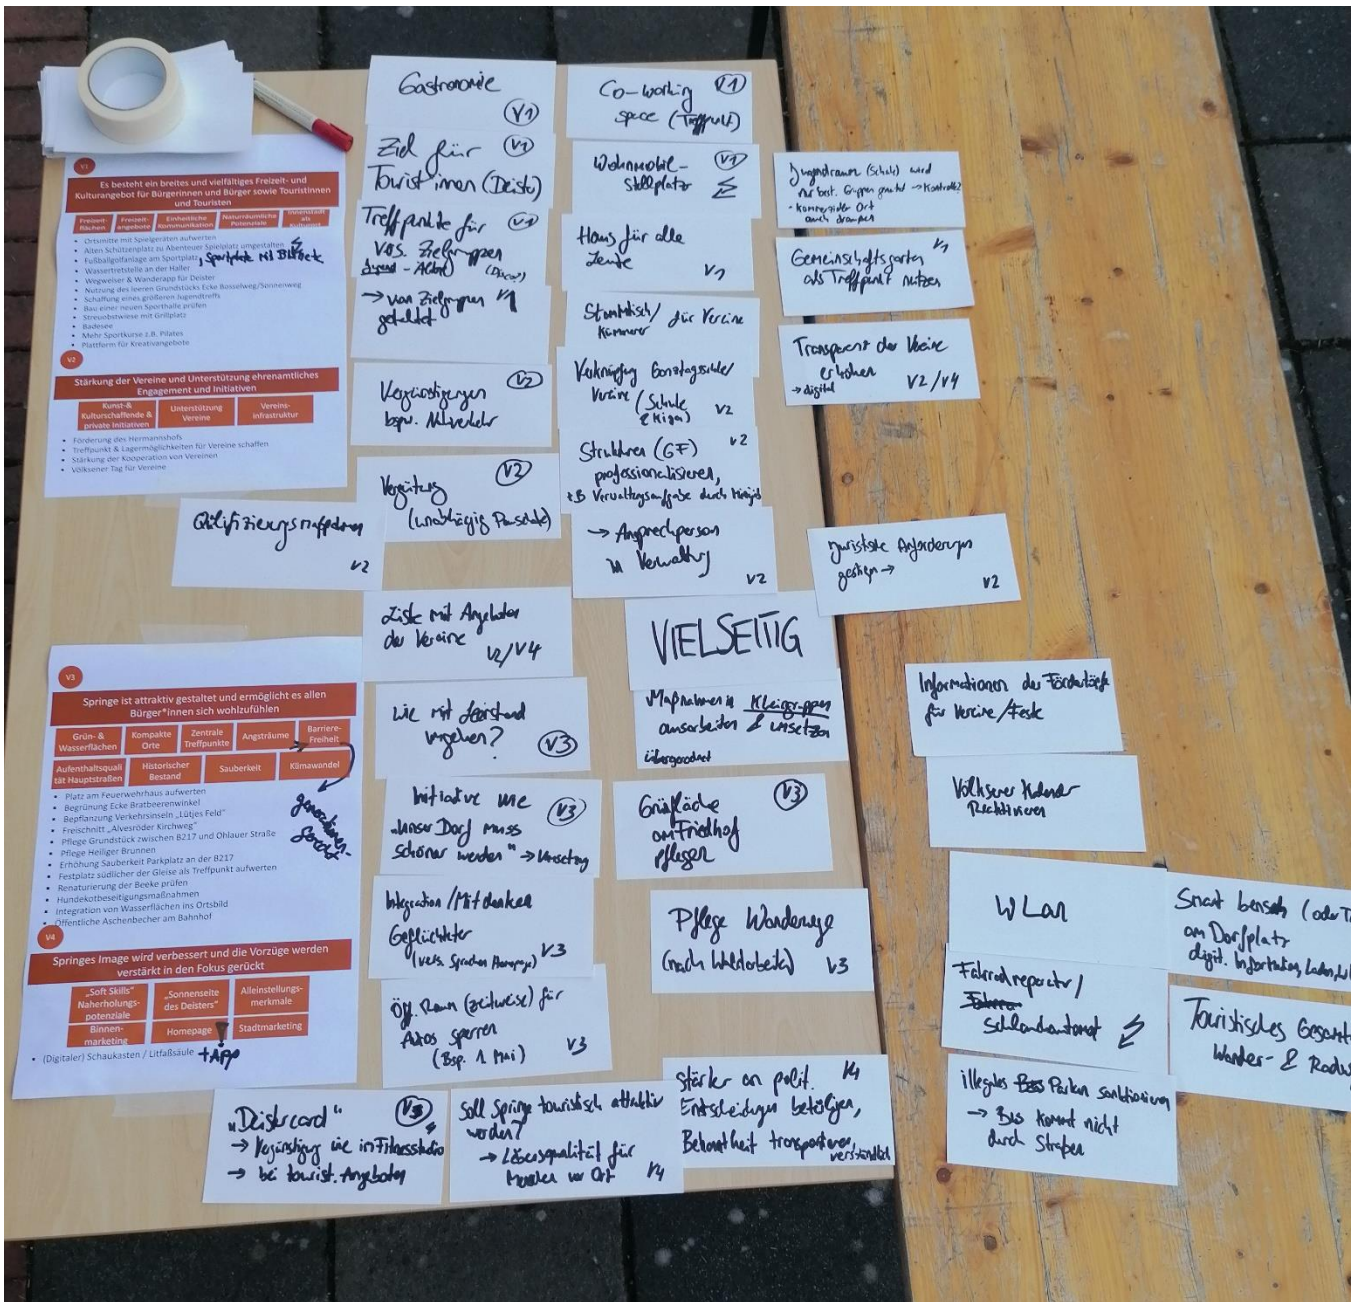 V1
Es besteht ein breites und vielfältiges Freizeit- und
Kulturangebot für Bürgerinnen und Bürger sowie Touristinnen
und Touristen
Freizeit-
flächen
Freizeit-
angebote
Einheitliche
Kommunikation
Naturräumliche
Potenziale
Innenstadt
als
• Ortsmitte mit Spielgeräten aufwerten
• Alten Schützenplatz zu Abenteuer Spielplatz umgestalten
• Fußballgolfanlage am Sportplatz, Sportplatz mit
• Wassertretstelle an der Haller
• Wegweiser & Wanderapp für Deister
• Nutzung des leeren Grundstücks Ecke Bosselweg/Sonnenweg
• Schaffung eines größeren Jugendtreffs
• Bau einer neuen Sporthalle prüfen
• Streuobstwiese mit Grillplatz
• Badesee
• Mehr Sportkurse z.B. Pilates
• Plattform für Kreativangebote
V2
Stärkung der Vereine und Unterstützung ehrenamtliches
Engagement und Initiativen
Kunst-&
Kulturschaffende &
private Initiativen
Unterstützung
Vereine
Vereins-
infrastruktur
• Förderung des Hermannshofs
• Treffpunkt & Lagermöglichkeiten für Vereine schaffen
• Stärkung der Kooperation von Vereinen
• Völksener Tag für Vereine
V3
Springe ist attraktiv gestaltet und ermöglicht es allen
Bürger*innen sich wohlzufühlen
Grün- &
Wasserflächen
Kompakte
Orte
Zentrale
Treffpunkte
Angsträume
Barriere-
Freiheit
Aufenthaltsquali
tät Hauptstraßen
Historischer
Bestand
Sauberkeit
Klimawandel
• Platz am Feuerwehrhaus aufwerten
• Begrünung Ecke Bratbeerenwinkel
• Bepflanzung Verkehrsinseln „Lütjes Feld"
• Freischnitt „Alvesröder Kirchweg"
• Pflege Grundstück zwischen B217 und Ohlauer Straße
• Pflege Heiliger Brunnen
• Erhöhung Sauberkeit Parkplatz an der B217
• Festplatz südlicher der Gleise als Treffpunkt aufwerten
• Renaturierung der Beeke prüfen
• Hundekotbeseitigungsmaßnahmen
• Integration von Wasserflächen ins Ortsbild
• Öffentliche Aschenbecher am Bahnhof
generationen-
V4
Springes Image wird verbessert und die Vorzüge werden
verstärkt in den Fokus gerückt
„Soft Skills"
Naherholungs-
potenziale
„Sonnenseite
des Deisters"
Alleinstellungs-
merkmale
Binnen-
marketing
Homepage
Stadtmarketing
• (Digitaler) Schaukasten / Litfaßsäule
+ App
Gastronomie
V1
Ziel für V1
Tourist:innen (Deister)
Treffpunkte für V1
vers. Zielgruppen
→ von Zielgruppen V1
gestaltet
Vergünstigungen V2
bspw. Nahverkehr
Vergütung V2
(unabhängig Pauschale)
Qualifizierungsmaßnahmen
V2
Liste mit Angeboten
der Vereine
V2/V4
Wie mit Leerstand
umgehen?
V3
Initiative wie
„Unser Dorf muss V3
schöner werden" → Umsetzung
Integration/Mitdenken
Geflüchteter
(vers. Sprachen Homepage) V3
Öff. Raum (zeitweise) für
Autos sperren
(Bsp. 1. Mai) V3
„Deistercard" V3
→ Vergünstigung wie im Fitnessstudio
→ bei tourist. Angeboten
Co-working V1
space (Treffpunkt)
Wohnmobil- V1
stellplatz
Haus für alle
Leute
V1
Stammtisch/ für Vereine
Kümmerer
Verknüpfung Ganztagsschule/
Vereine (Schule
& Kiga) V2
Strukturen (GF) V2
professionalisieren,
z.B. Verwaltungsaufgabe durch
→ Ansprechperson
in Verwaltung
V2
VIELSEITIG
Maßnahmen in Kleingruppen
ausarbeiten & umsetzen
übergeordnet
Grünfläche V3
am Friedhof
pflegen
Pflege Wanderwege
(nach Waldarbeiten) V3
Soll Springe touristisch attraktiv
werden?
→ Lebensqualität für
Menschen vor Ort V4
Stärker an polit. V4
Entscheidungen beteiligen,
Bekanntheit transportieren,
verständlich
Jugendraum (Schule) wird
nur best. Gruppen genutzt →
- kommerzieller Ort
auch draußen
Gemeinschaftsgarten V1
als Treffpunkt nutzen
Transparenz der Vereine
erhöhen
→ digital V2/V4
juristische Anforderungen
gestiegen →
V2
Informationen der Fördertöpfe
für Vereine/Feste
Völksener Kalender
Reaktivieren
WLan
Fahrradreparatur/
Schlauchautomat
illegales Parken sanktionieren
→ Bus kommt nicht
durch Straßen
am Dorfplatz
digit. Information, Laden,
Touristisches
Wander- &